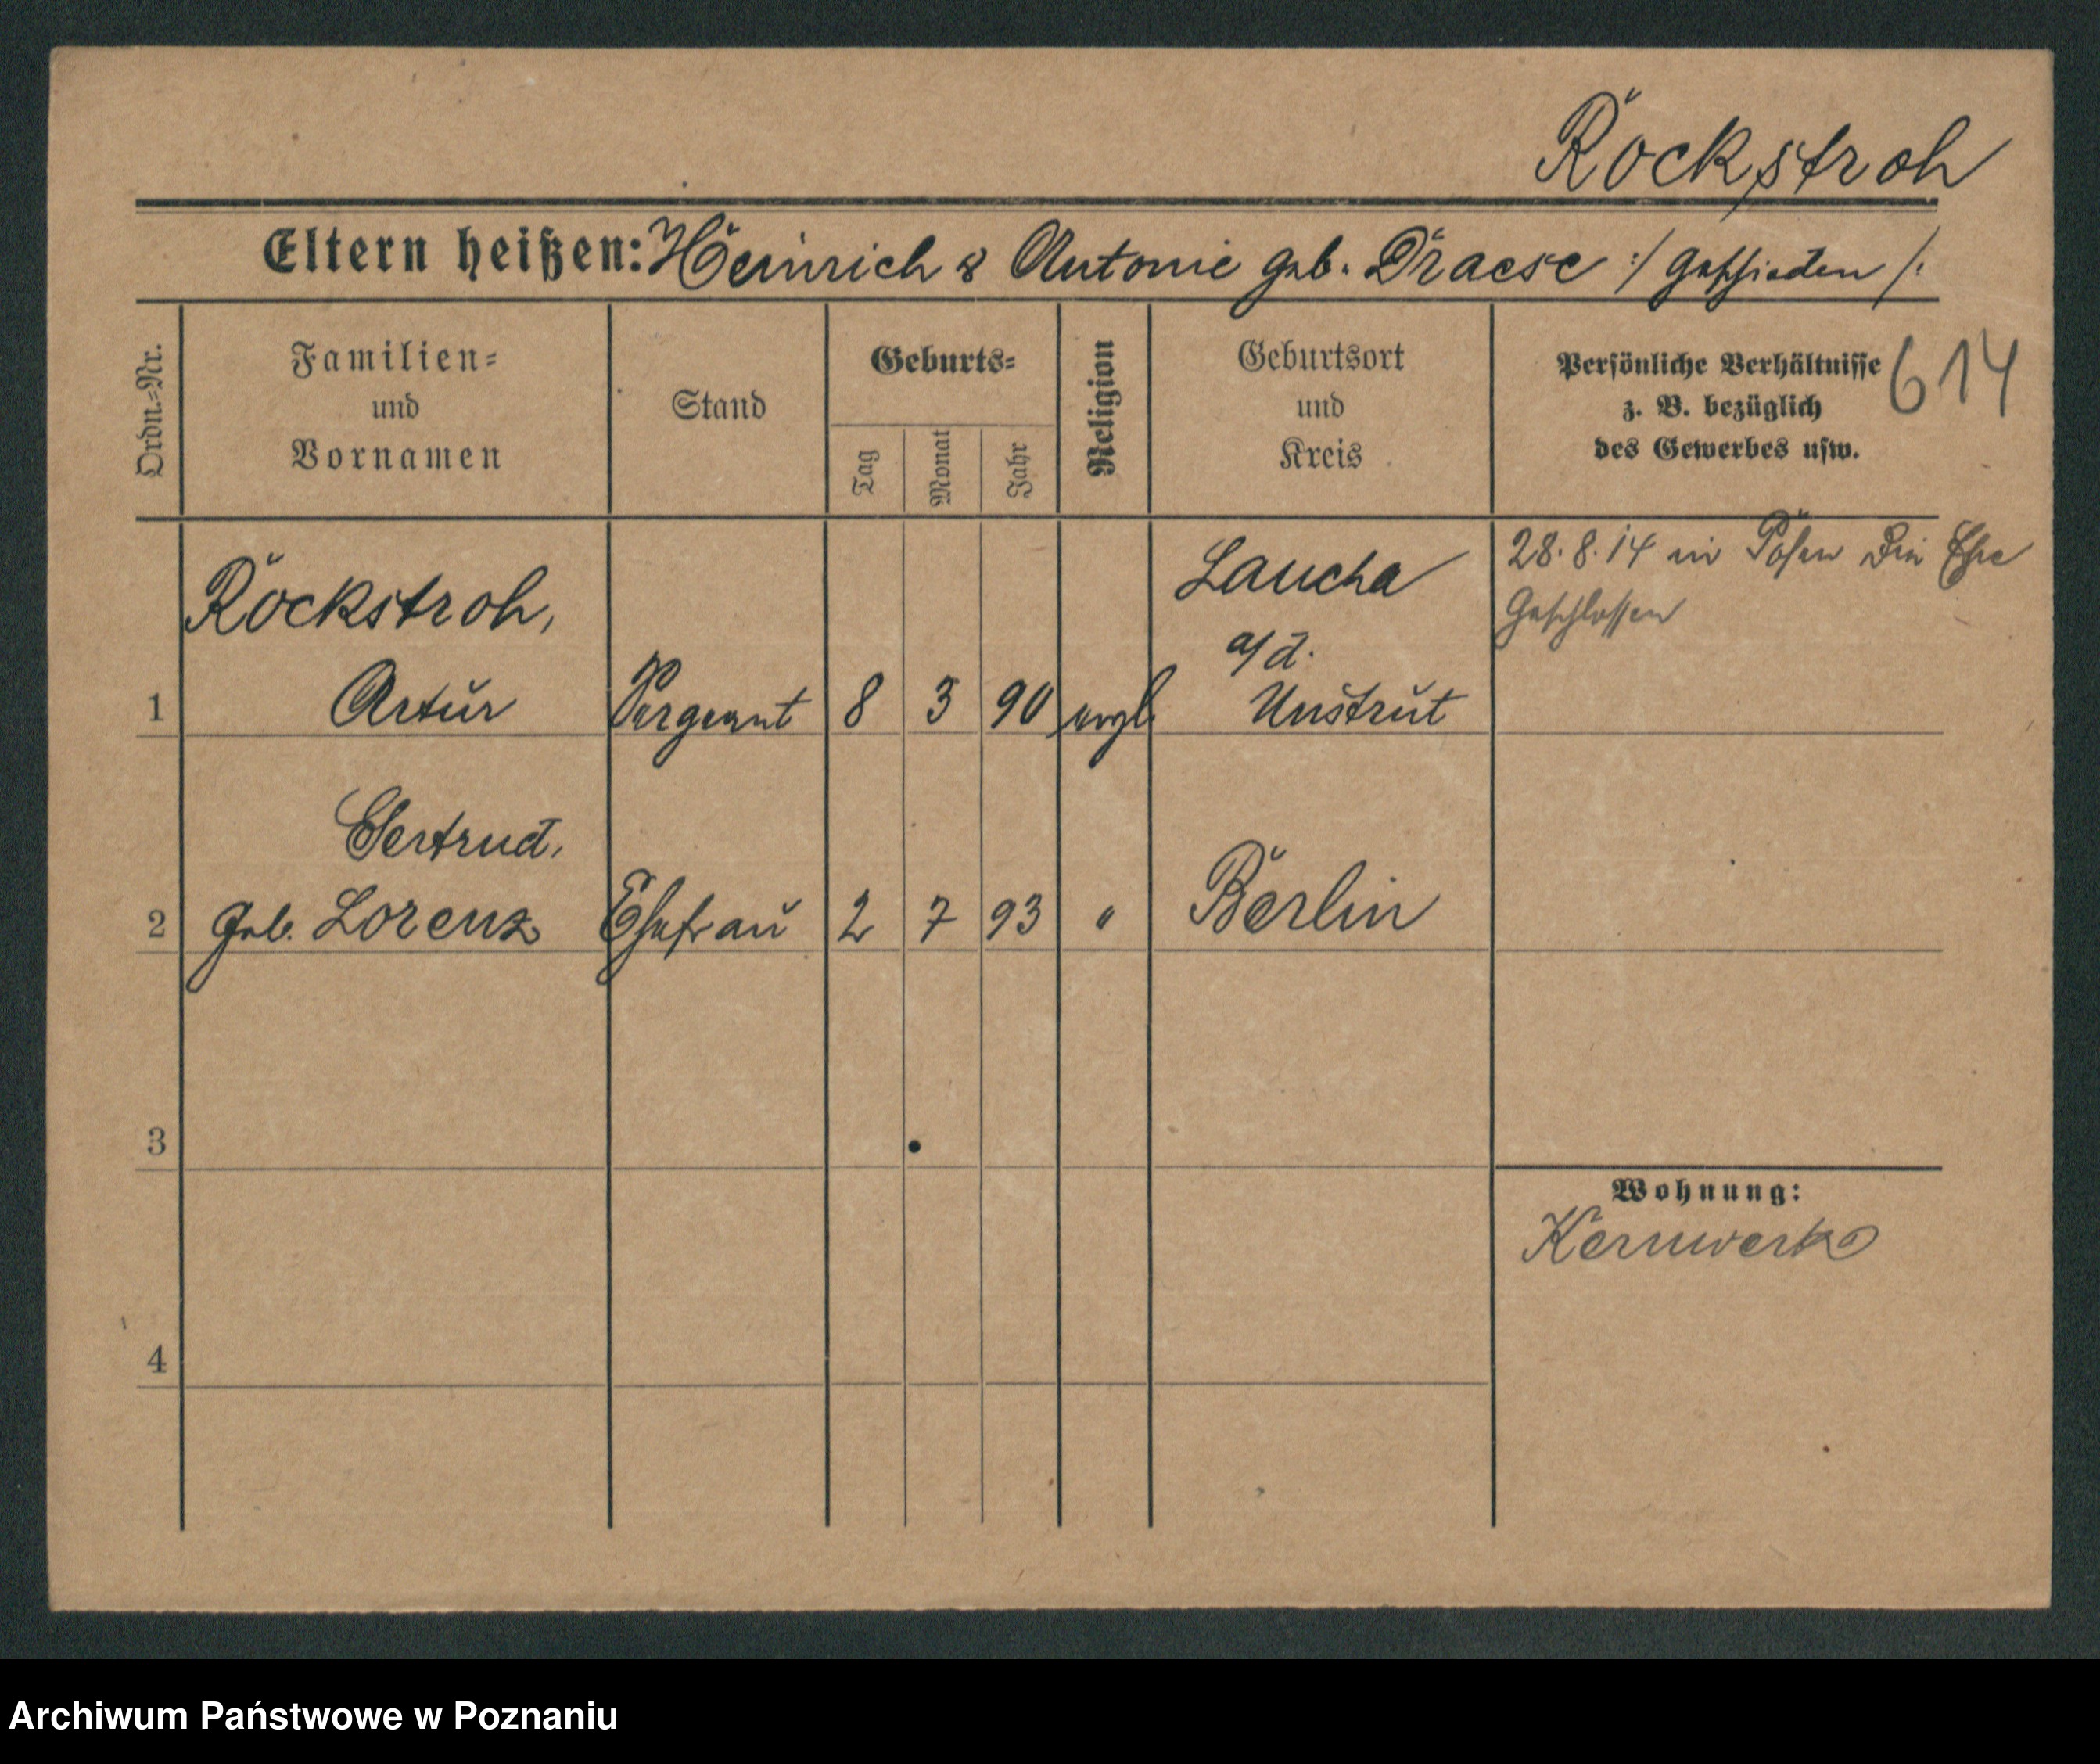 Rockstroh
Eltern heißen: Heinrich & Antonie geb. Draese :/ geschieden /:
Ordn.-Nr.
Familien-
und
Vornamen
Stand
Geburts-
Tag
Monat
Jahr
Religion
Geburtsort
und
Kreis
Persönliche Verhältnisse
z. B. bezüglich
des Gewerbes usw.
614
Rockstroh,
Laucha
28.8.14 in Posen die Ehe
geschlossen
a/d.
1 Artur Sergeant 8 3 90 evgl Unstrut
Gertrud,
2 geb. Lorenz Ehefrau 2 7 93 " Berlin
3
Wohnung:
Kernwerk
4
Archiwum Państwowe w Poznaniu